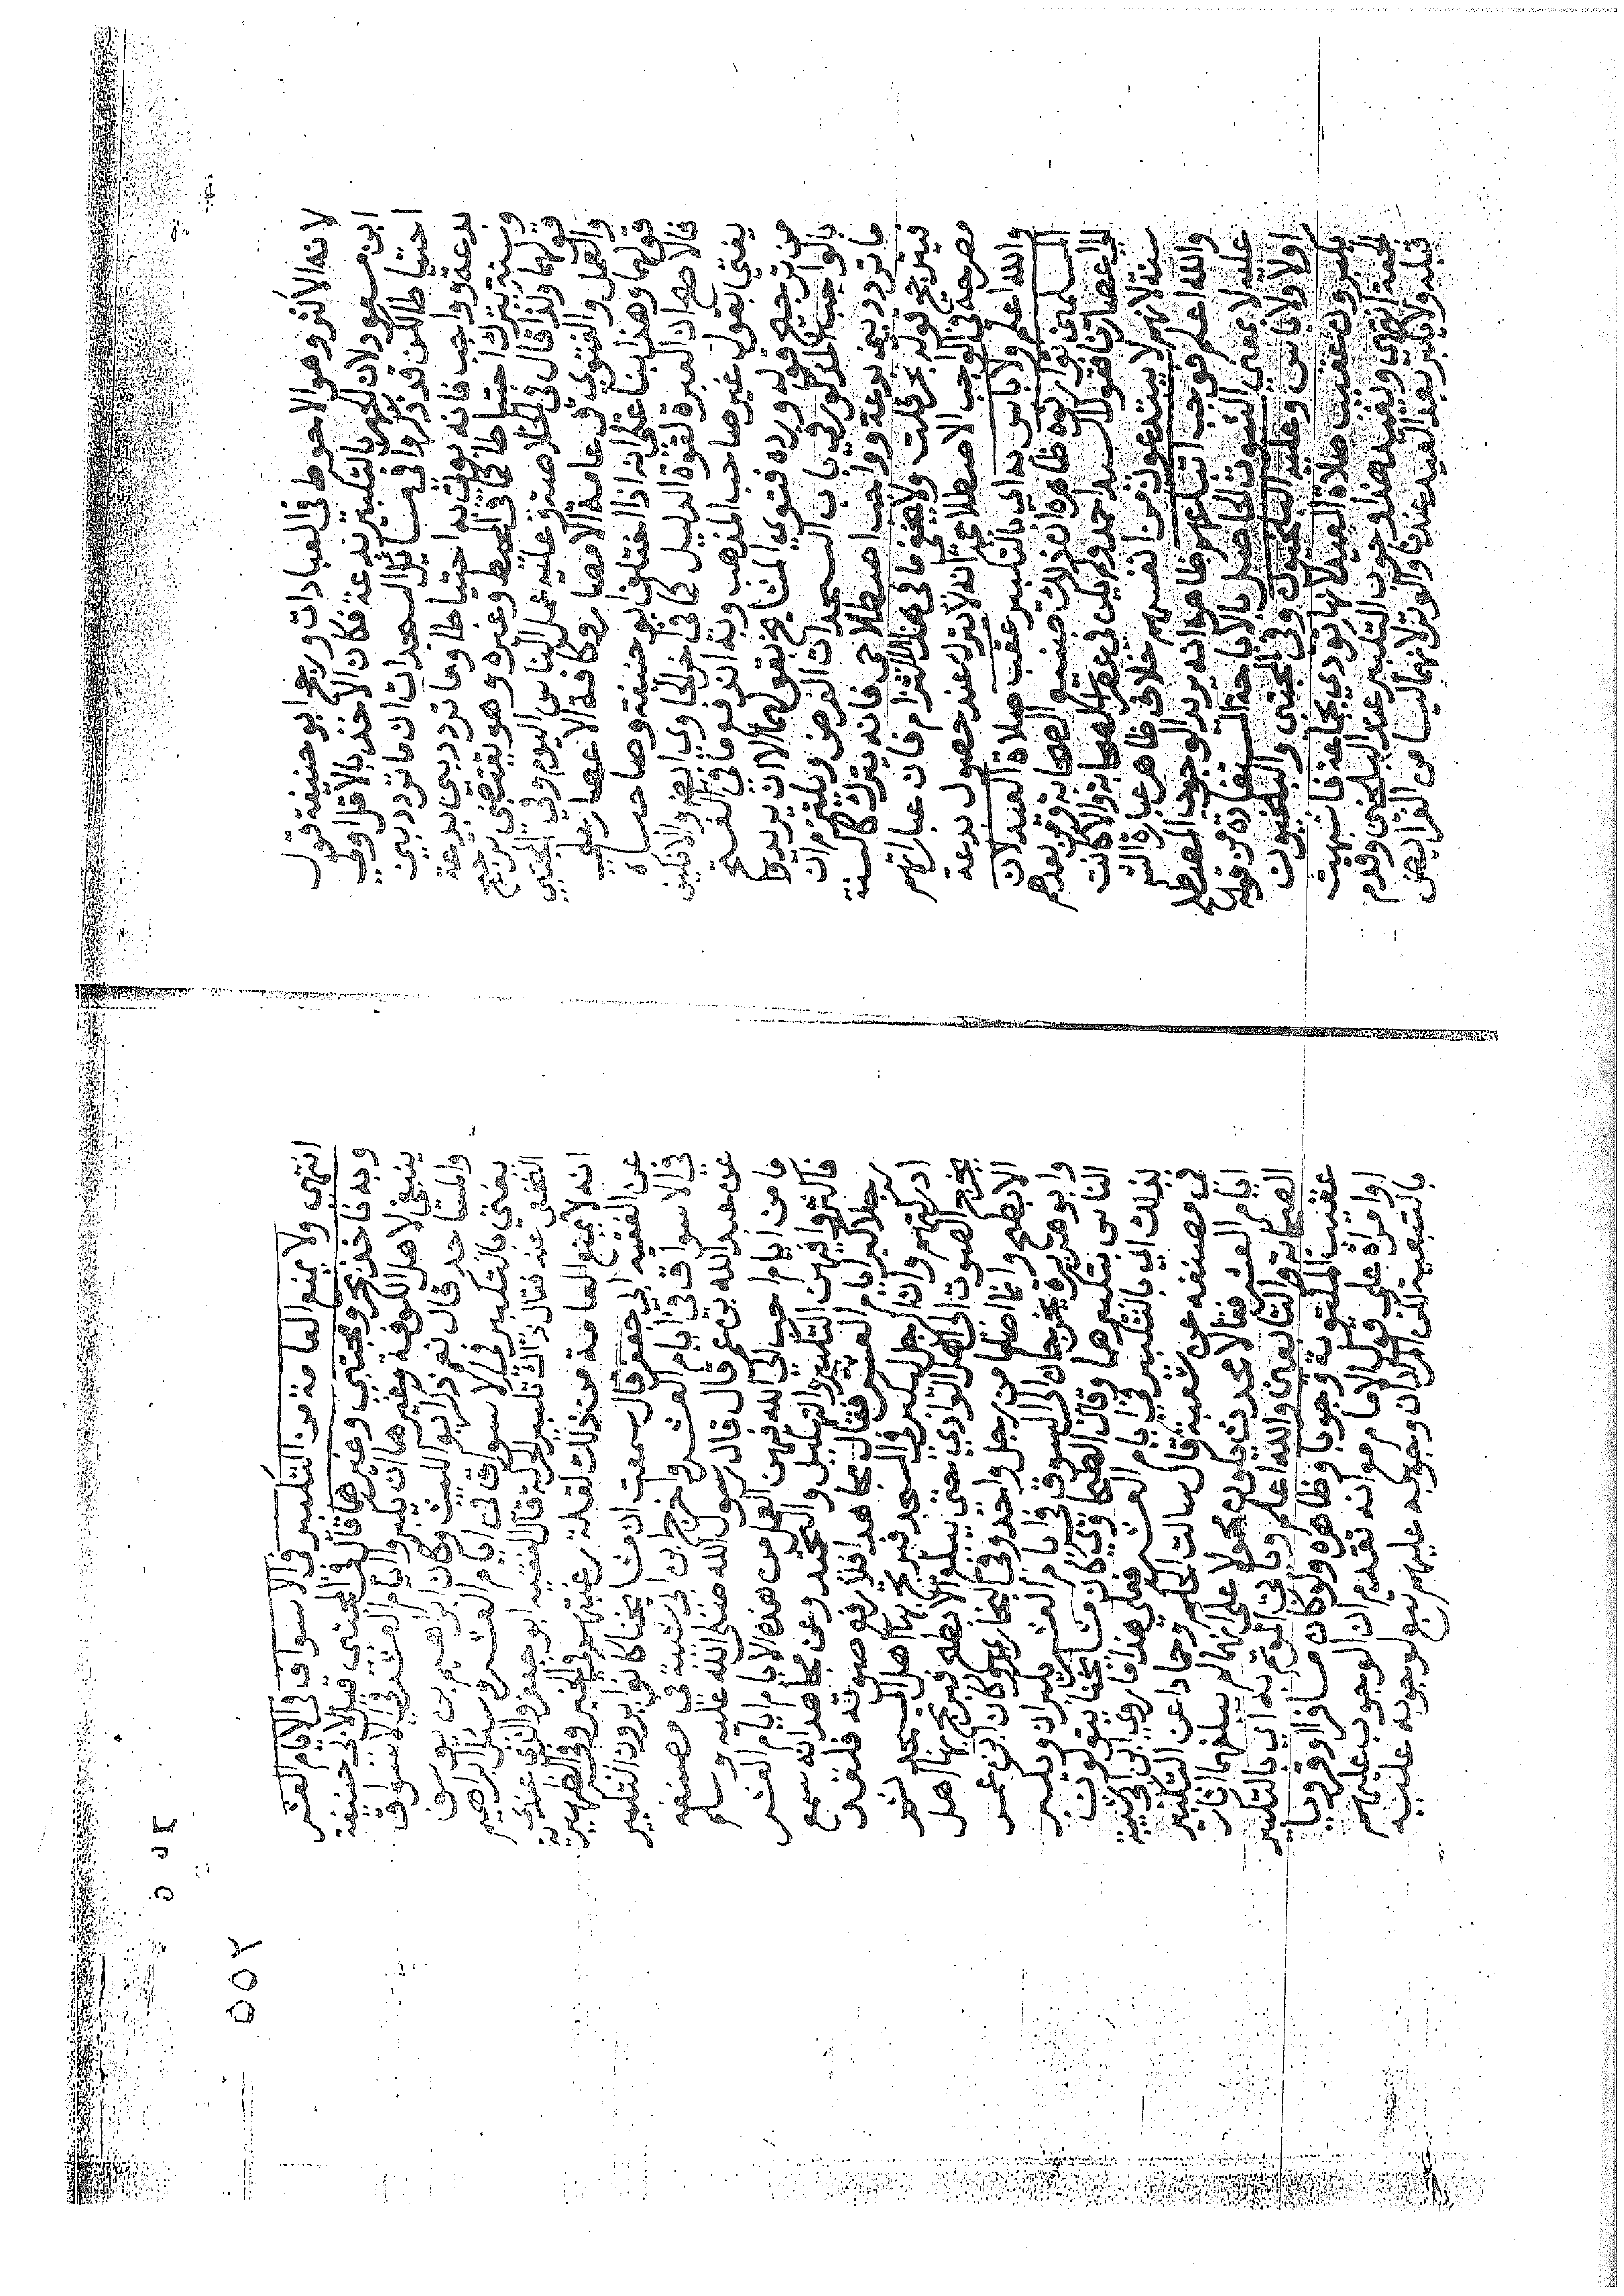 لانه الاكثر وهو الاحوط في العبادات ورجح ابو حنيفة قول
ابن مسعود لان الجهر بالتكبير بدعة فكان الاخذ بالاقل اولى
احتياطا لكن قد ذكروا في مسايل السجدات ان ما تردد بين
بدعة وواجب فانه يوتى به احتياطا وما تردد بين بدعة
وسنة يترك احتياطا كما في المحيط وغيره وهو يقتضي ترجيح
قولهما ولذا قال في الخلاصة وعليه عمل الناس اليوم وفي المجتبى
والعمل والفتوى في عامة الامصار وكافة الاعصار على
قولهما وهذا بناء على انه اذا اختلف ابو حنيفة وصاحباه
فالاصح ان العبرة لقوة الدليل كما في اخر الحاوي والا فكيف
يفتى بقول غير صاحب المذهب وبه اندفع ما في الفتح
من ترجيح قوله ورده فتوى المشايخ بقولهما الا ان يريدوا
بالواجب المذكور في باب السجدات الفرض ويلتزم ان
ما تردد بين بدعة وواجب اصطلاحي فانه يترك كالسنة
فيترجح قوله بحر قلت ولا يخفى ما في هذا الالتزام فان عباراتهم
مصرحة في الواجب الاصطلاحي انه لا يترك عند حصول بدعة
والله اعلم ولا باس به اي بالتكبير عقب صلاة العيد لان
المسلمين توارثوه ظاهره ان ذلك صنيع الصحابة ومن بعدهم
الى اعصارنا فقول السيد احمد ولم يكن في عصر الصحابة والا كانت
سنة لانهم لا يبتدعون من انفسهم خلاف ظاهر عبارة الش
والله اعلم فوجب اتباعهم ظاهره انه يريد الوجوب المصطلح
عليه لا بمعنى الثبوت الحاصل بالاباحة المستفادة من قوله
اولا ولا باس وعليه البلخيون وفي المجتبى والبلخيون
يكبرون عقيب صلاة العيد لانها تودى بجماعة فاشبهت
الجمعة انتهى ويفيد هذا وجوب التكبير عند البلخي وقدم
قبله ولا يكبر بعد العيد عندنا والوتر لانهما ليسا من الفرائض
انتهى ولا يمنع العامة من التكبير في الاسواق في الايام العشر
وبه ناخذ بحر ومجتبى وغيرهما قال في المجتبى قيل لابي حنيفة
ينبغي لاهل الكوفة وغيرها ان يكبروا ايام العشر في الاسواق
والمساجد قال نعم وذكر ابو الليث وكان ابراهيم بن يوسف
يفتي بالتكبير في الاسواق في ايام العشر وسئل ابراهيم
النخعي عنه فقال ذاك تكبير الحوكة قال الفقيه ابو جعفر والذي عندي
انه لا يمنع العامة من ذلك لقلة رغبتهم في الخير وفي الظهيرية
عن الفقيه ابي جعفر قال سمعت ان مشايخنا كانوا يرون التكبير
في الاسواق في ايام العشر واخرج ابن ابي شيبة في مصنفه
عن عبد الله بن عمر قال قال رسول الله صلى الله عليه وسلم
ما من ايام احب الى الله فيهن العمل من هذه الايام ايام العشر
فاكثروا فيهن التكبير والتهليل والتحميد وعن مجاهد انه سمع
رجلا كبر ايام العشر فقال مجاهد افلا رفع صوته فلقد
ادركتهم وان الرجل ليكبر في المسجد فيرتج بها اهل المسجد ثم
يخرج الصوت الى اهل الوادي حتى يبلغ الابطح فيرتج بها اهل
الابطح وانما اصلها من رجل واحد وفي البخاري وكان ابن عمر
وابو هريرة يخرجان الى السوق في ايام العشر يكبران ويكبر
الناس بتكبيرهما وقال الطحاوي كان مشايخنا يقولون
بذلك اي بالتكبير في ايام العشر فعلى هذا ما روى ابن ابي شيبة
في مصنفه عن شعبة قال سالت الحكم وحمادا عن التكبير
ايام العشر فقالا محدث يكون محمولا على انهما لم يبلغهما اثار
الصحابة والتابعين والله اعلم وياتي الموتم به اي بالتكبير
عقيب المكتوبة وجوبا وظاهره ولو كان مسافرا او قرويا
او امراة على قول الامام مع انه تقدم ان الوجوب عليهم
بالتبعية لكن المراد ان وجوبه عليهم تبع لوجوبه عليه
٥٥٢